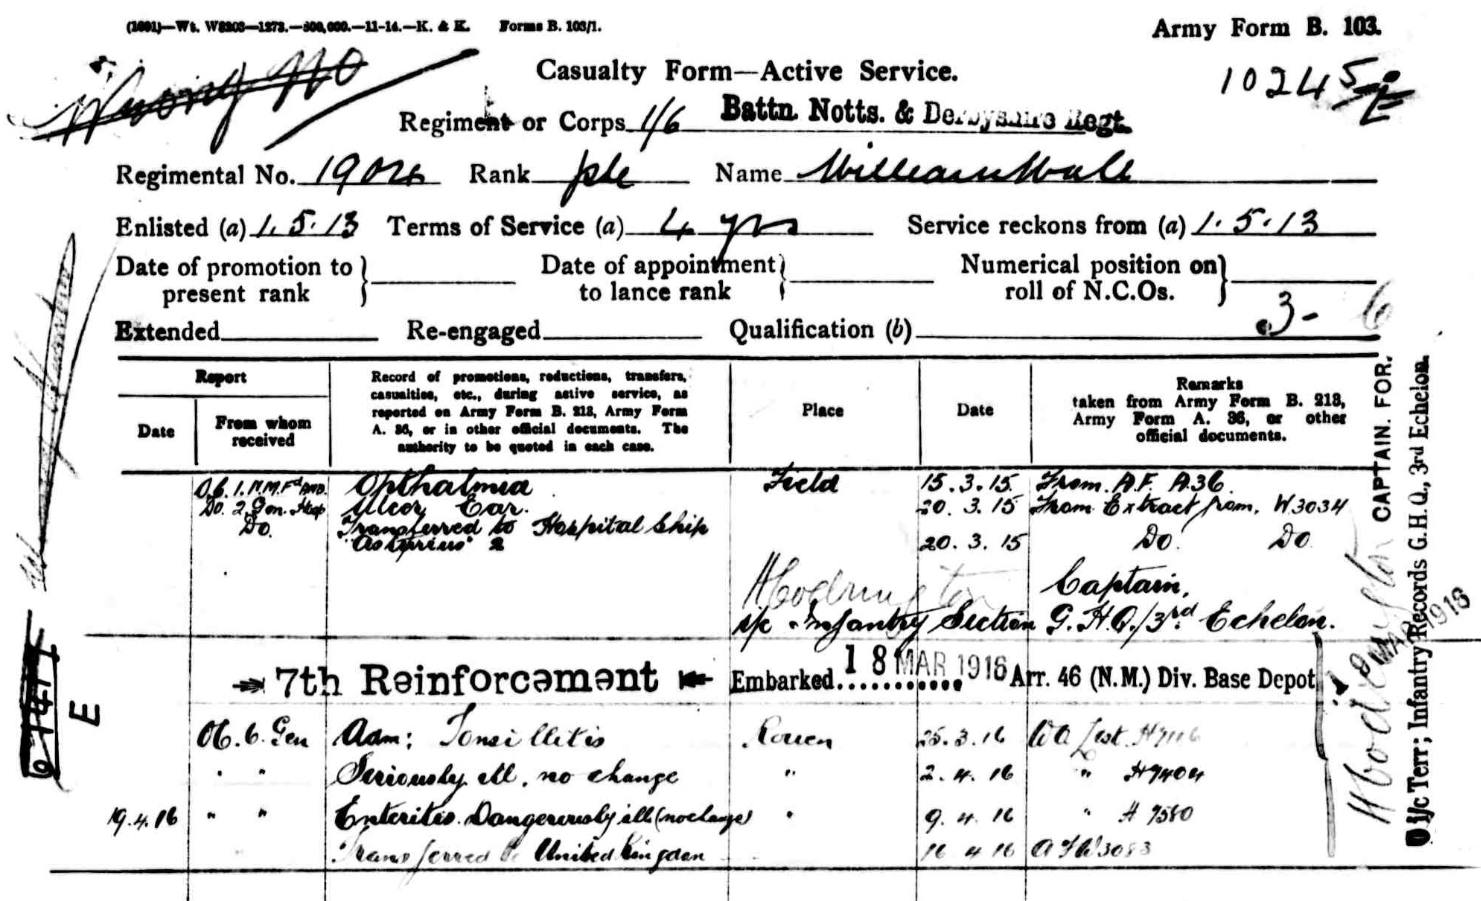 (1691)—Wt. W8203—1273.—500,000.—11-14.—K. & K. Forms B. 103/1.
Army Form B. 103.
Wrong No
Casualty Form—Active Service.
10245
Regiment or Corps 1/6 Battn. Notts. & Derbyshire Regt.
Regimental No. Rank pte Name William Wall
Enlisted (a) 1.5.13 Terms of Service (a) 4 yrs Service reckons from (a) 1.5.13
Date of promotion to present rank
Date of appointment to lance rank
Numerical position on roll of N.C.Os.
3- 6
Extended Re-engaged Qualification (b)
Report
Date
From whom received
Record of promotions, reductions, transfers,
casualties, etc., during active service, as
reported on Army Form B. 213, Army Form
A. 36, or in other official documents. The
authority to be quoted in each case.
Place
Date
Remarks
taken from Army Form B. 213,
Army Form A. 36, or other
official documents.
O.C. 1. N.M. Fd Amb. Opthalmia Field 15.3.15. From A.F. A36
Do. 2 Gen. Hosp Ulcer Ear. 20.3.15 From Extract from W3034
Do. Transferred to Hospital Ship 20.3.15 Do. Do
"Asturius" 2
Captain,
i/c Infantry Section G.H.Q./3rd Echelon.
7th Reinforcement Embarked 18 MAR 1916 Arr. 46 (N.M.) Div. Base Depot
OC. 6. Gen Adm: Tonsillitis Rouen 25.3.16 WO List H
" " Seriously ill, no change " 2.4.16 " H9404
19.4.16 " " Enteritis Dangerously ill (no change) " 9.4.16 " H 9580
" Transferred to United Kingdom 16 4 16 A F W3083
E
CAPTAIN. FOR.
O i/c Terr; Infantry Records G.H.Q., 3rd Echelon.
MAR 1916